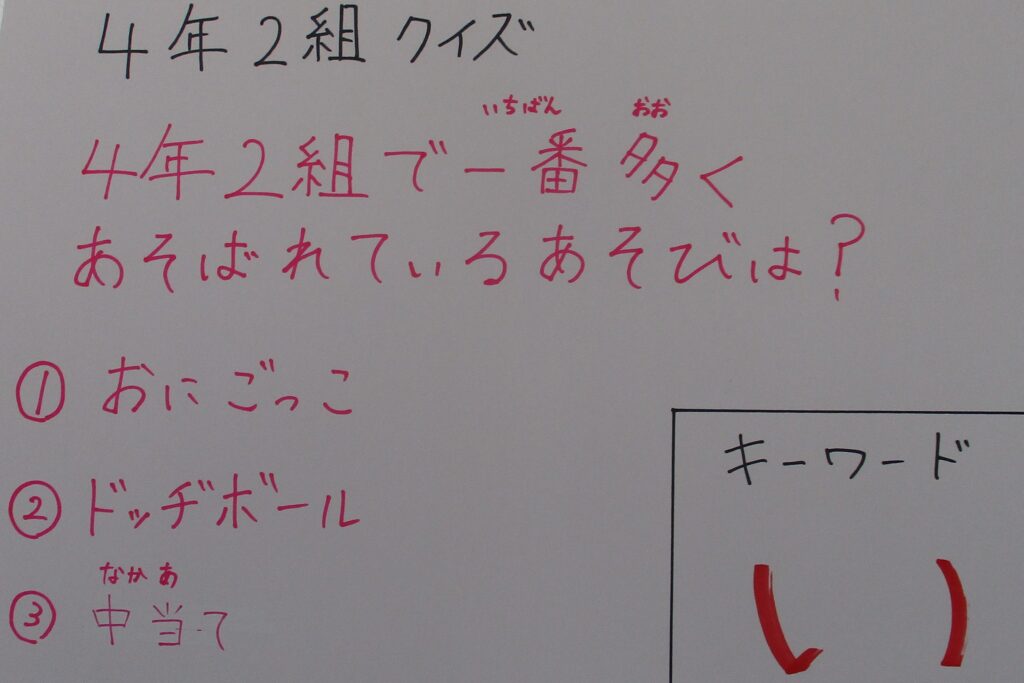 4年2組 クイズ
いちばん おお
4年2組で一番多く
あそばれているあそびは?
① おにごっこ
② ドッヂボール
なか あ
③ 中当て
キーワード
い